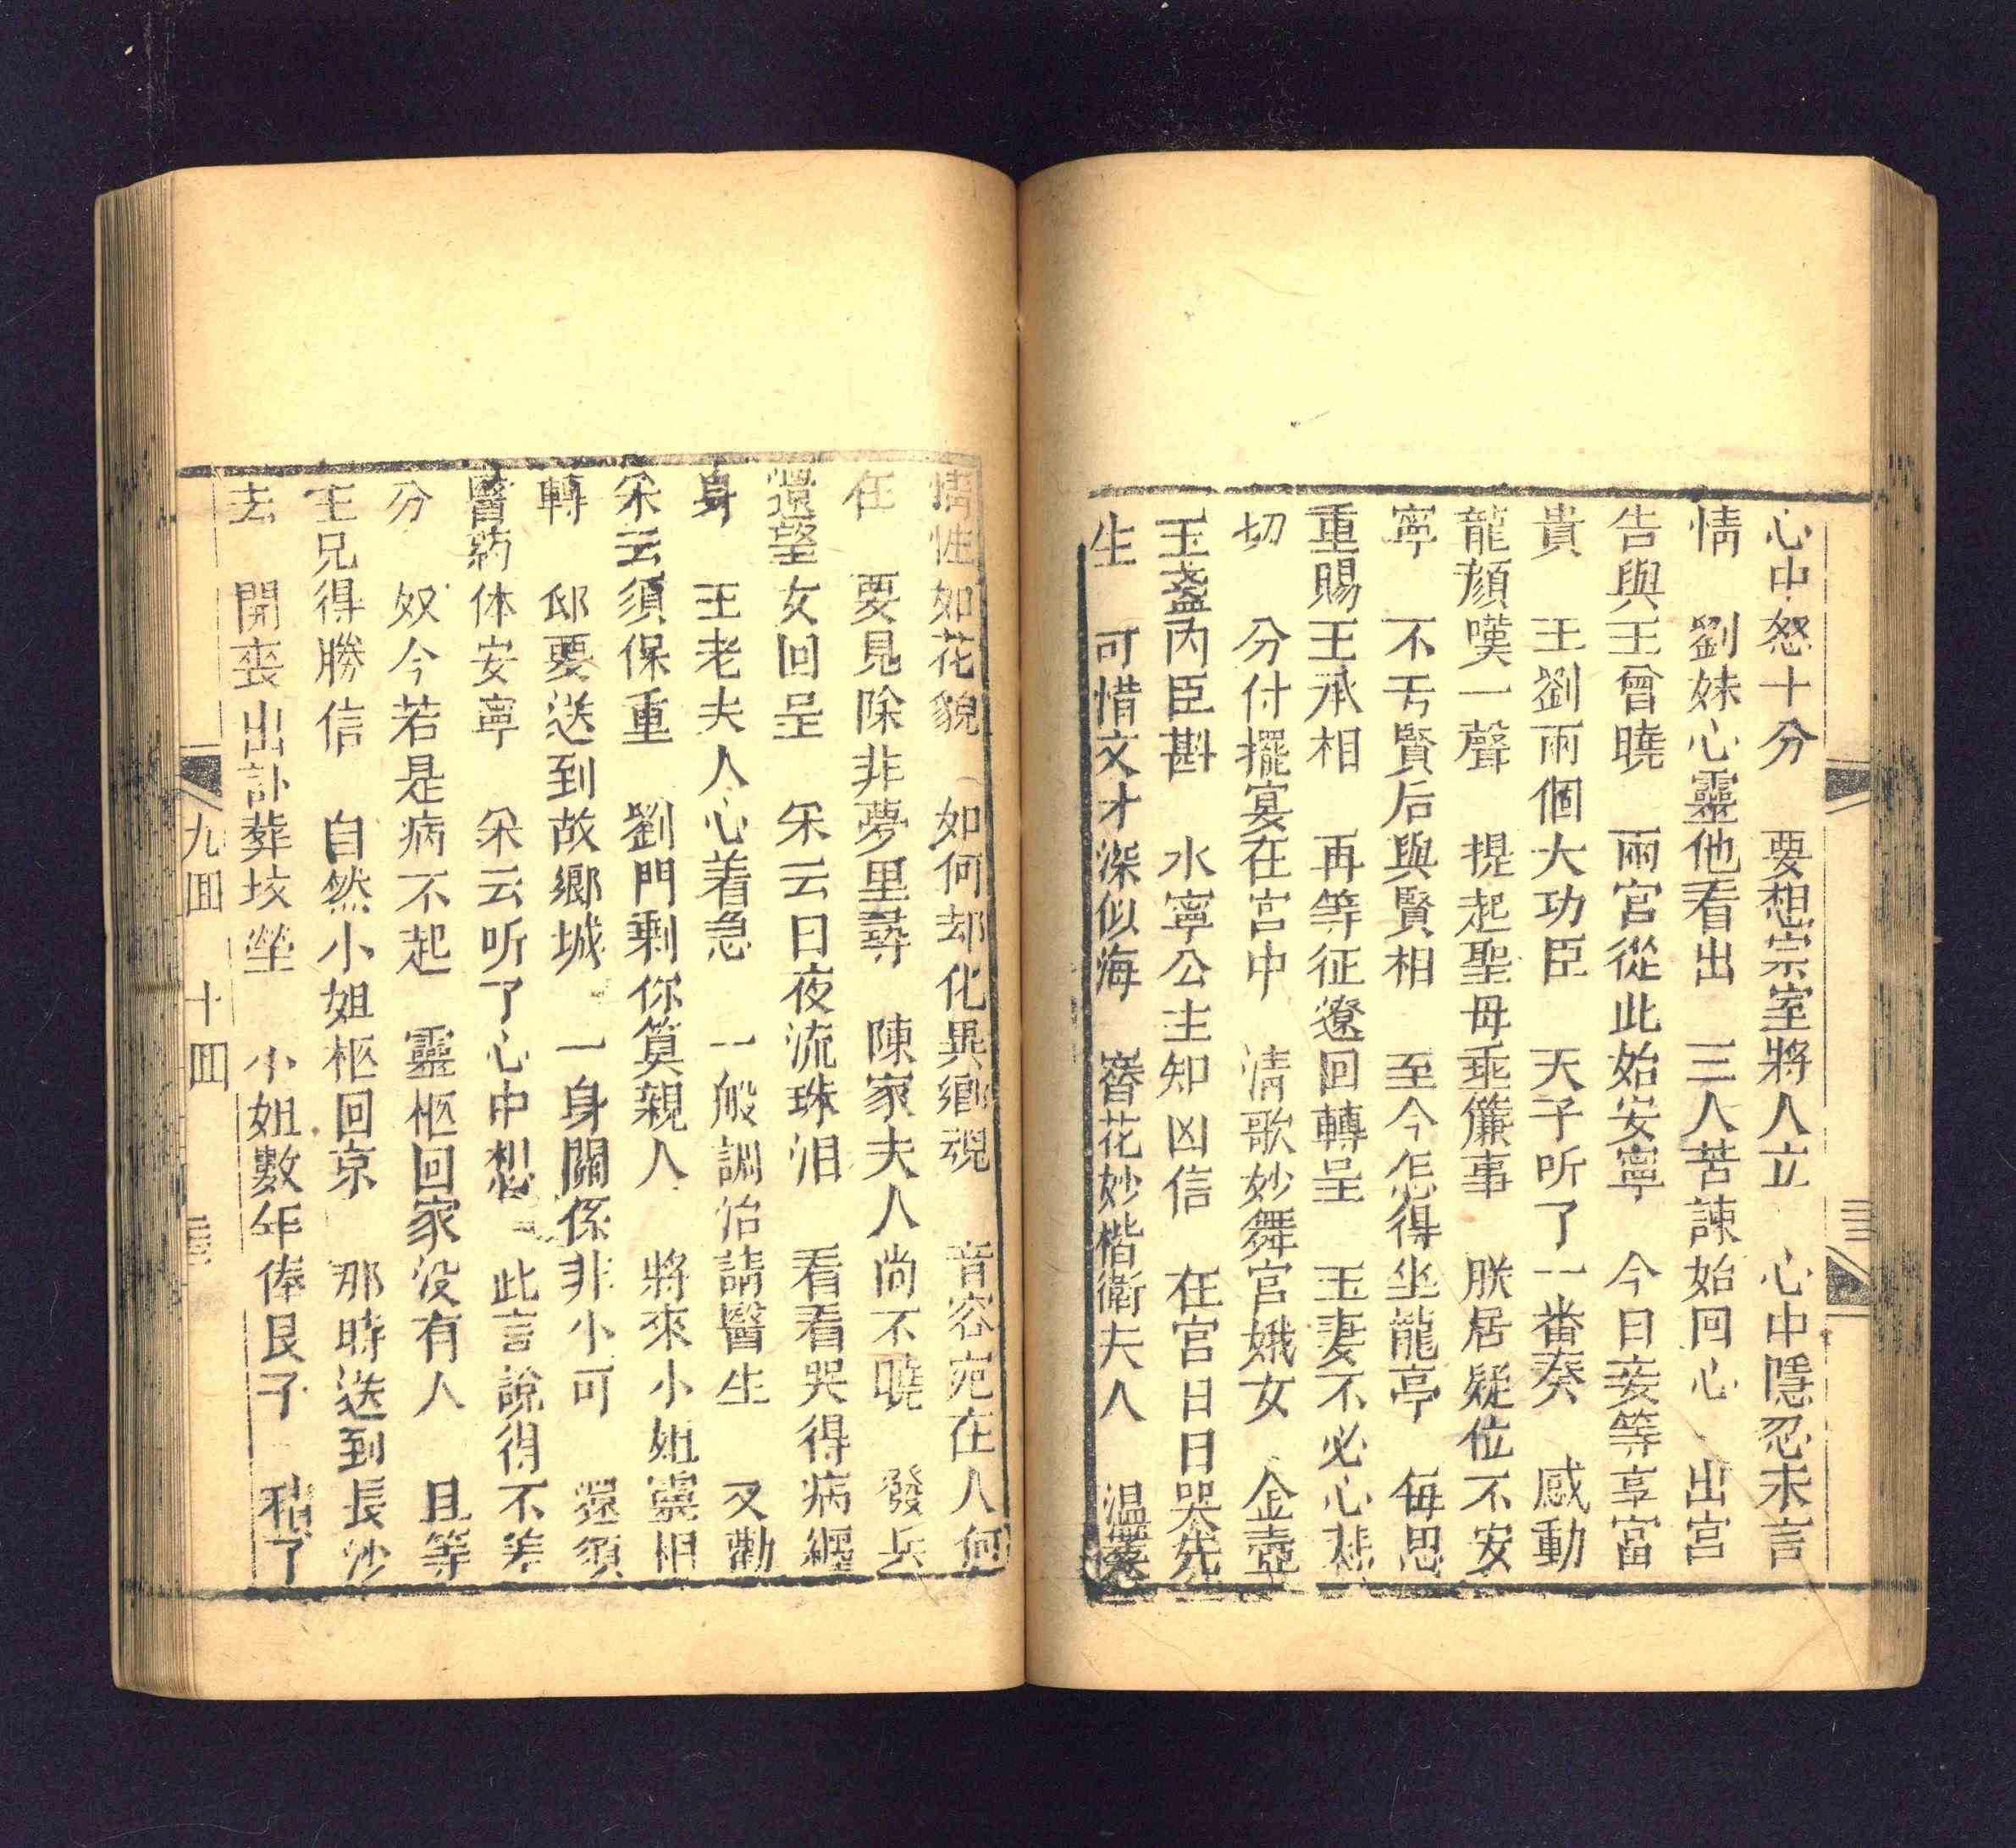 心中怒十分　要想宗室將人立　心中隱忍未言
情　劉妹心靈他看出　三人苦諫始回心　出宫
告與王曾曉　兩宮從此始安寧　今日妾等享富
貴　王劉兩個大功臣　天子听了一番奏　感動
龍顔嘆一聲　提起聖母乖簾事　朕居疑位不安
寧　不亐賢后與賢相　至今怎得坐龍亭　每思
重賜王承相　再等征遼回轉呈　玉妻不必心悲
切　分付擺宴在宮中　清歌妙舞宫娥女　金壺
玉盞内臣斟　水寧公主知凶信　在宫日日哭先
生　可惜文才深似海　簪花妙楷衛夫人　温柔
情性如花貌　如何却化異鄉魂　音容宛在人何
在　要見除非夢里尋　陳家夫人尚不曉　發兵
還望女回呈　采云日夜流珠泪　看看哭得病纒
身　王老夫人心着急　一般調治請醫生　又勸
采云須保重　劉門剩你算親人　將來小姐靈柩
轉　邸要送到故鄉城　一身關係非小可　還須
醫药体安寧　采云听了心中想　此言說得不差
分　奴今若是病不起　靈柩回家没有人　且等
王兄得勝信　自然小姐柩回京　那時送到長沙
去　開丧出訃葬坟塋　小姐數年俸艮子　積了
九囬　十四